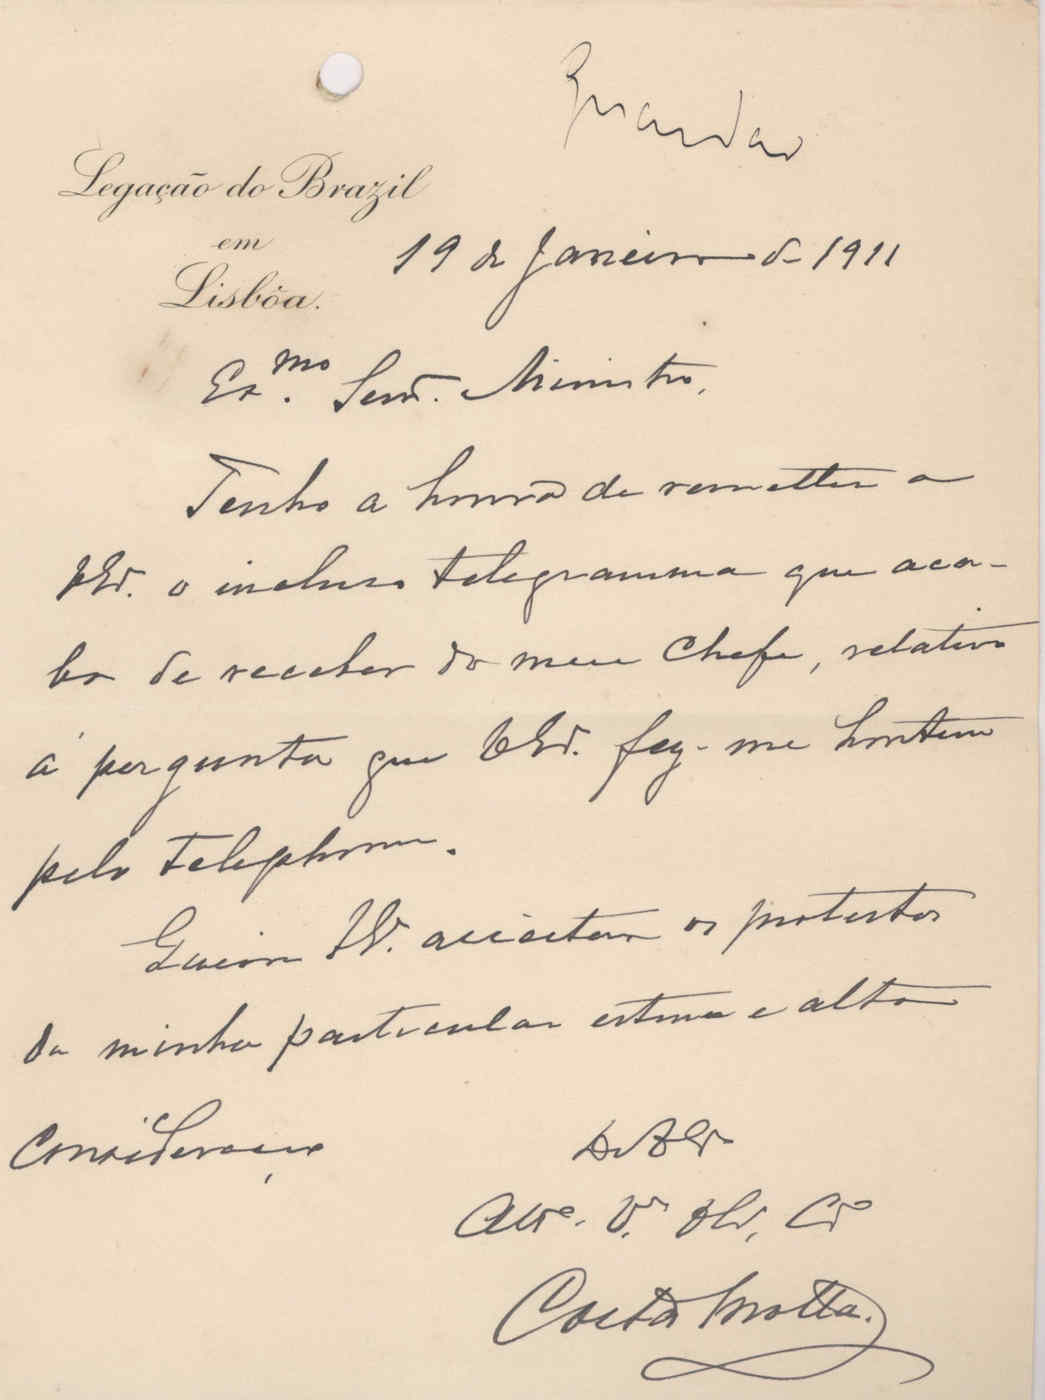 Guardar
Legação do Brazil
em
Lisbôa.
19 de Janeiro de 1911
Ex.mo Senr. Ministro,
Tenho a honra de remetter a
V.Ex. o incluso telegramma que aca-
bo de receber do meu Chefe, relativo
á pergunta que V.Ex. fez-me hontem
pelo telephone.
Queira V.Ex. acceitar os protestos
da minha particular estima e alta
consideração
De V.Ex.
Costa Motta.